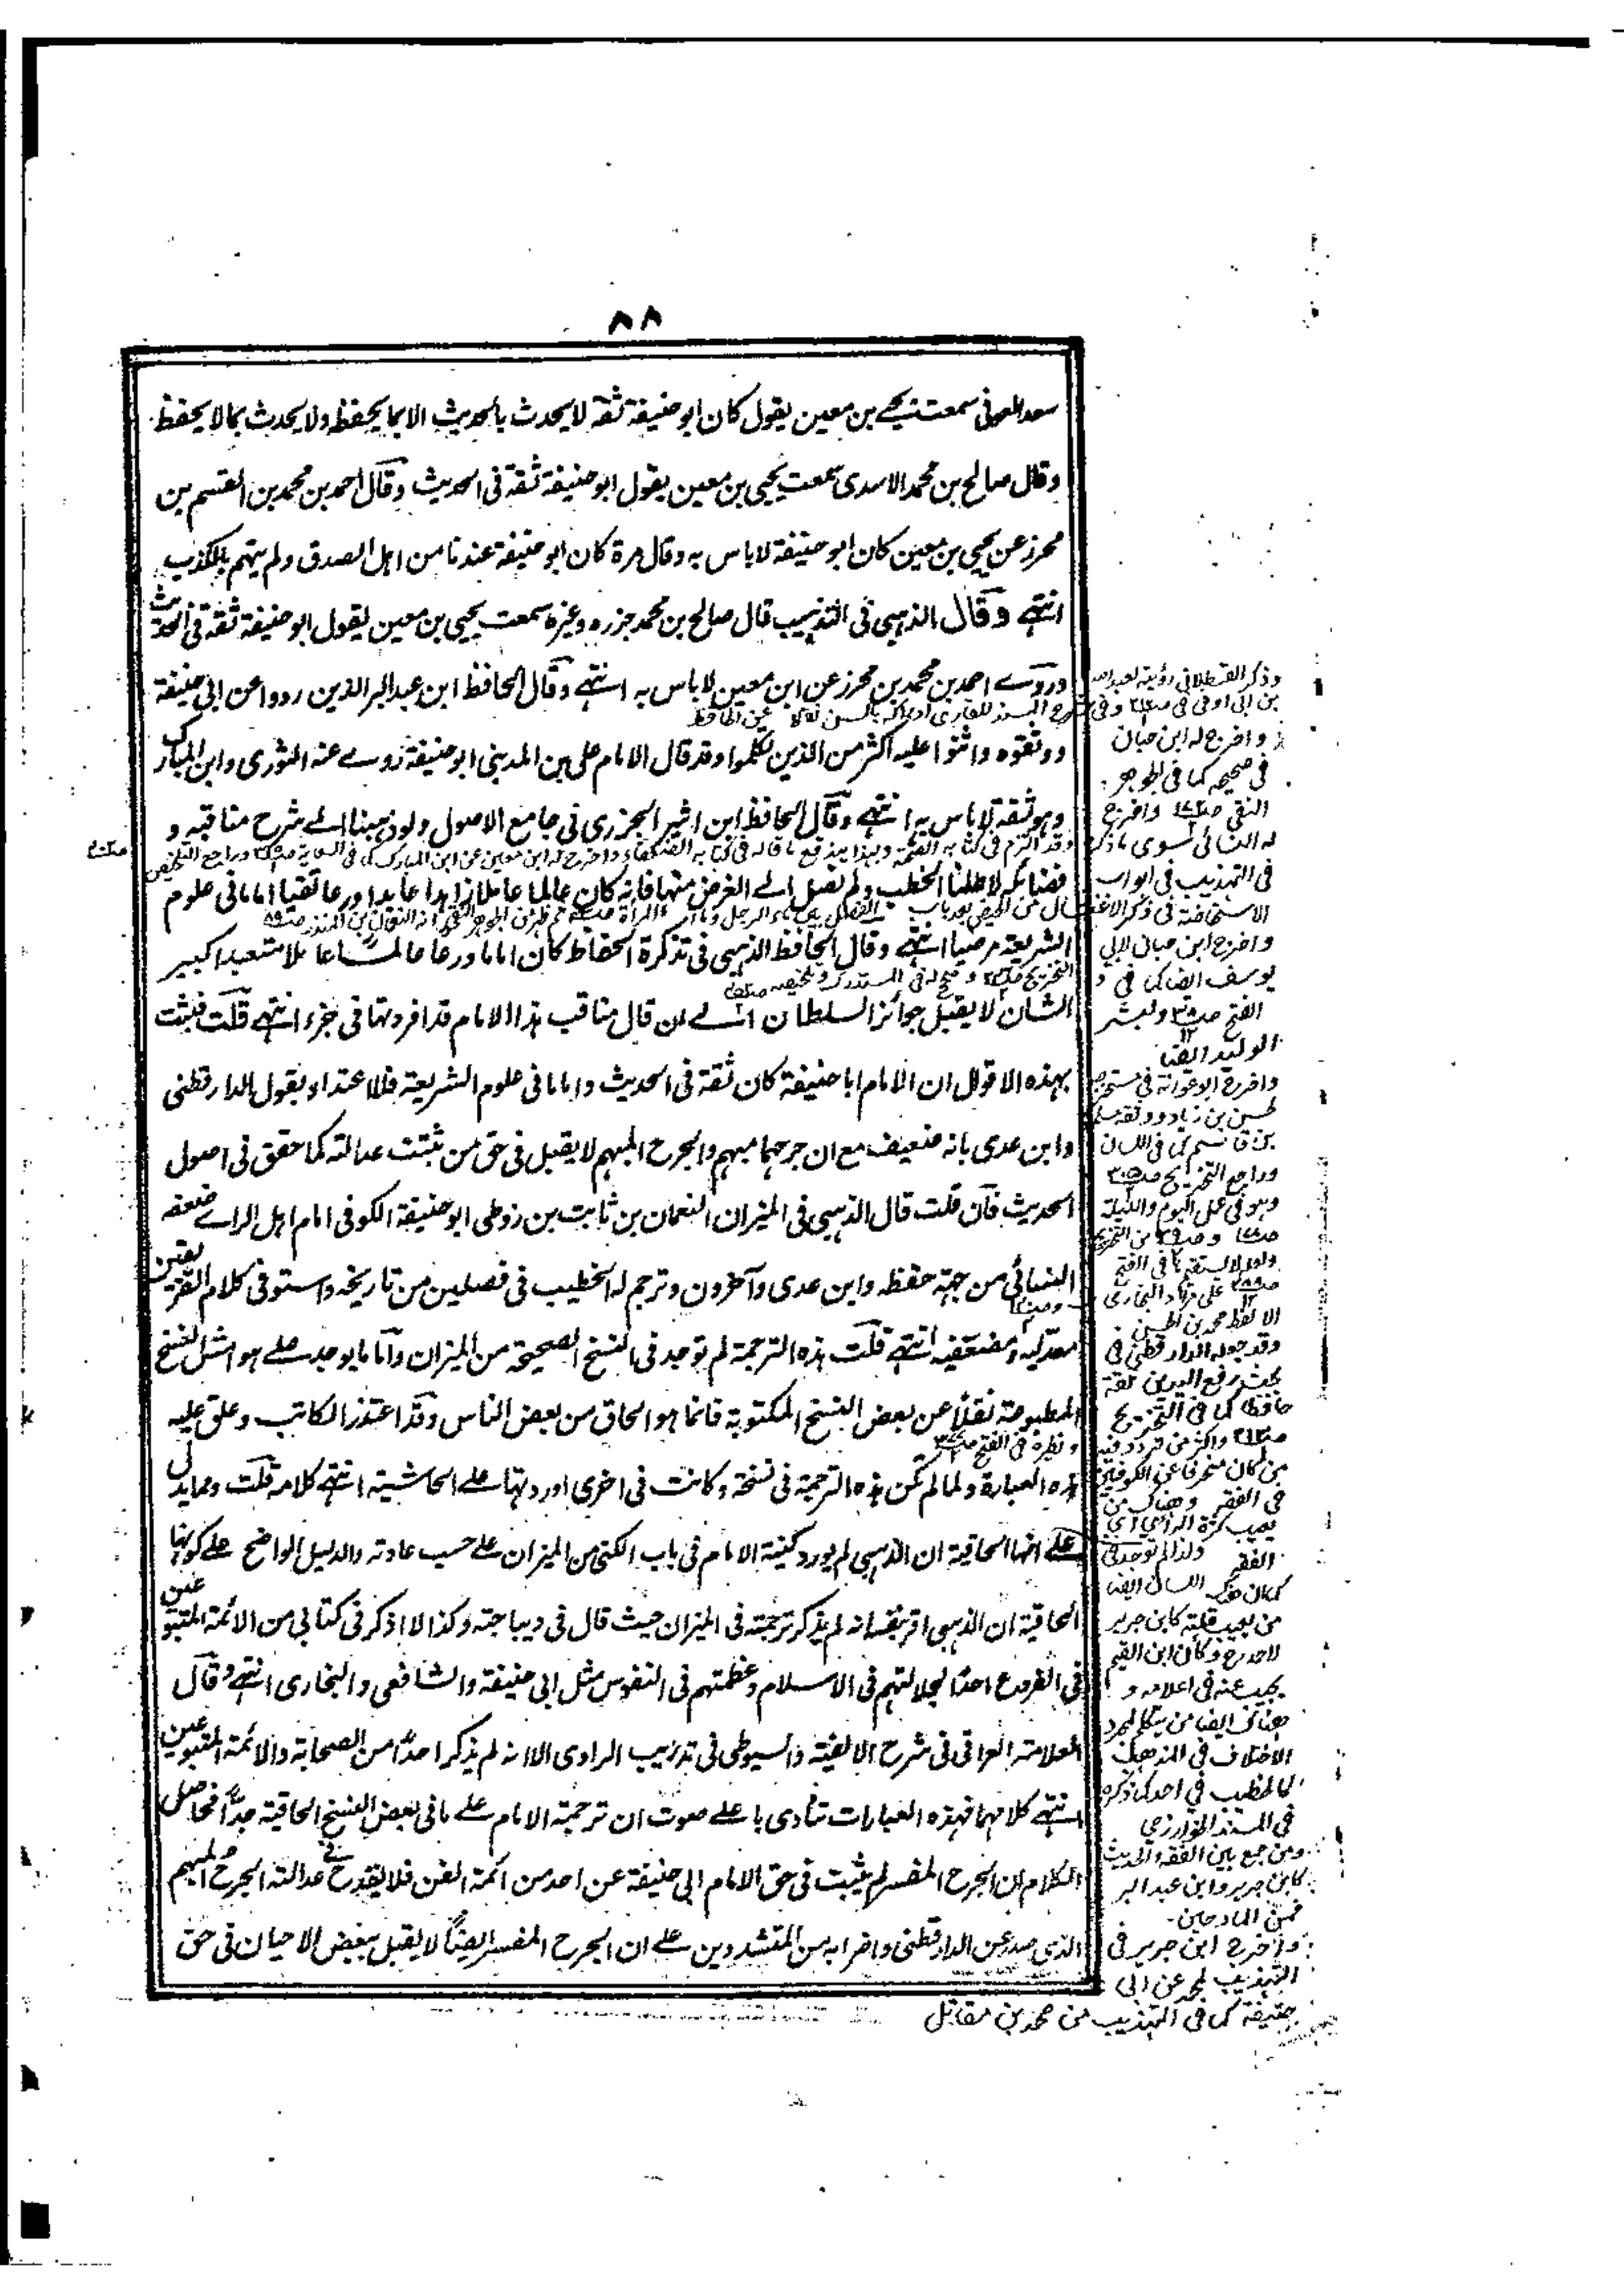 ٨٨
سعد العوفى سمعت يحيے بن معين يقول كان ابو حنيفة ثقة لا يحدث بالحديث الا بما يحفظ ولا يحدث بما لا يحفظ
وقال صالح بن محمد الاسدى سمعت يحيى بن معين يقول ابو حنيفة ثقة فى الحديث وقال احمد بن محمد بن القسم بن
محرز عن يحيى بن معين كان ابو حنيفة لا باس به وقال مرة كان ابو حنيفة عندنا من اهل الصدق ولم يتهم بالكذب
انتهے وقال الذهبى فى التذهيب قال صالح بن محمد جزره وغيره سمعت يحيى بن معين يقول ابو حنيفة ثقة فى الحديث
وروے احمد بن محمد بن محرز عن ابن معين لا باس به انتهے وقال الحافظ ابن عبد البر الذين رووا عن ابى حنيفة
ووثقوه واثنوا عليه اكثر من الذين تكلموا وقد قال الامام على بن المدينى ابو حنيفة روے عنه الثورى وابن المبارك
وهو ثقة لا باس به انتهے وقال الحافظ ابن اثير الجزرى فى جامع الاصول ولو ذهبنا الے شرح مناقبه و
فضائله لاطلنا الخطب ولم نصل الے الغرض منها فانه كان عالما عاملا زاهدا عابدا ورعا تقيا اماما فى علوم
الشريعة مرضيا انتهے وقال الحافظ الذهبى فى تذكرة الحفاظ كان اماما ورعا عالما عاملا متعبدا كبير
الشان لا يقبل جوائز السلطان الے ان قال مناقب هذا الامام قد افردتها فى جزء انتهے قلت فثبت
بهذه الاقوال ان الامام ابا حنيفة كان ثقة فى الحديث واماما فى علوم الشريعة فلا اعتداد بقول الدارقطنى
وابن عدى بانه ضعيف مع ان جرحهما مبهم والجرح المبهم لا يقبل فى حق من ثبتت عدالته كما حقق فى اصول
الحديث فان قلت قال الذهبى فى الميزان النعمان بن ثابت بن زوطى ابو حنيفة الكوفى امام اهل الراے ضعفه
النسائى من جهة حفظه وابن عدى وآخرون وترجم له الخطيب فى فصلين من تاريخه واستوفى كلام الفريقين
معدليه ومضعفيه انتهے قلت هذه الترجمة لم توجد فى النسخ الصحيحة من الميزان واما ما يوجد علے هوامش النسخ
المطبوعة نقلا عن بعض النسخ المكتوبة فانما هو الحاق من بعض الناس وقد اعتذر الكاتب وعلق عليه
هذه العبارة ولما لم تكن هذه الترجمة فى نسخة وكانت فى اخرى اوردتها علے الحاشية انتهے كلامه قلت ومما يدل
علے انها الحاقية ان الذهبى لم يورد كنية الامام فى باب الكنى من الميزان علے حسب عادته والدليل الواضح علے كونها
الحاقية ان الذهبى اقر بنفسه انه لم يذكر ترجمته فى الميزان حيث قال فى ديباجته وكذا لا اذكر فى كتابى من الائمة المتبوعين
فى الفروع احدا لجلالتهم فى الاسلام وعظمتهم فى النفوس مثل ابى حنيفة والشافعى والبخارى انتهے وقال
العلامة العراقى فى شرح الالفية والسيوطى فى تدريب الراوى الا انه لم يذكر احدا من الصحابة والائمة المتبوعين
انتهے كلامهما فهذه العبارات تنادى باعلے صوت ان ترجمة الامام علے ما فى بعض النسخ الحاقية جدا فحاصل
الكلام ان الجرح المفسر لم يثبت فى حق الامام ابى حنيفة عن احد من ائمة الفن فلا يقدح فے عدالته الجرح المبهم
الذى صدر عن الدارقطنى واضرابه من المتشددين علے ان الجرح المفسر ايضاً لا يقبل ببعض الاحيان فى حق
وذكر القسطلانى رؤية لعبد الله
بن ابى اوفى فى
واخرج له ابن حبان
فى صحيحه كما فى الجوهر
النقى واخرج
له النسائى
فى التهذيب فى ابواب
الاستحاضة فى ذكر
واخرج ابن حبان لابى
يوسف ايضا كما فى
الفتح ولبشر
الوليد ايضا
واخرج ابو عوانة فى
لحسن بن زياد ووثقه
بن قاسم كما فى اللسان
وراجع التخريج
وهو فى عمل اليوم والليلة
الا لفظ محمد بن الحسن
وقد جعله الدارقطنى فى
بحث رفع اليدين ثقة
حافظا كما فى التخريج
من كان منحرفا عن الكوفيين
فى الفقه وهناك من
يعيب كثرة الراى اى
الفقه
من يعيب قلته كابن جرير
لاحمد وكان ابن القيم
يجيب عنه فى اعلامه و
هناك ايضا من يتكلم لمجرد
الاختلاف فى المذهب
كالخطيب فى احمد كما ذكره
فى المسند الخوارزمى
ومن جمع بين الفقه والحديث
كابن جرير وابن عبد البر
فمن المادحين
واخرج ابن جرير فى
التهذيب لمحمد عن ابى
حنيفة كما فى التهذيب من محمد بن مقاتل